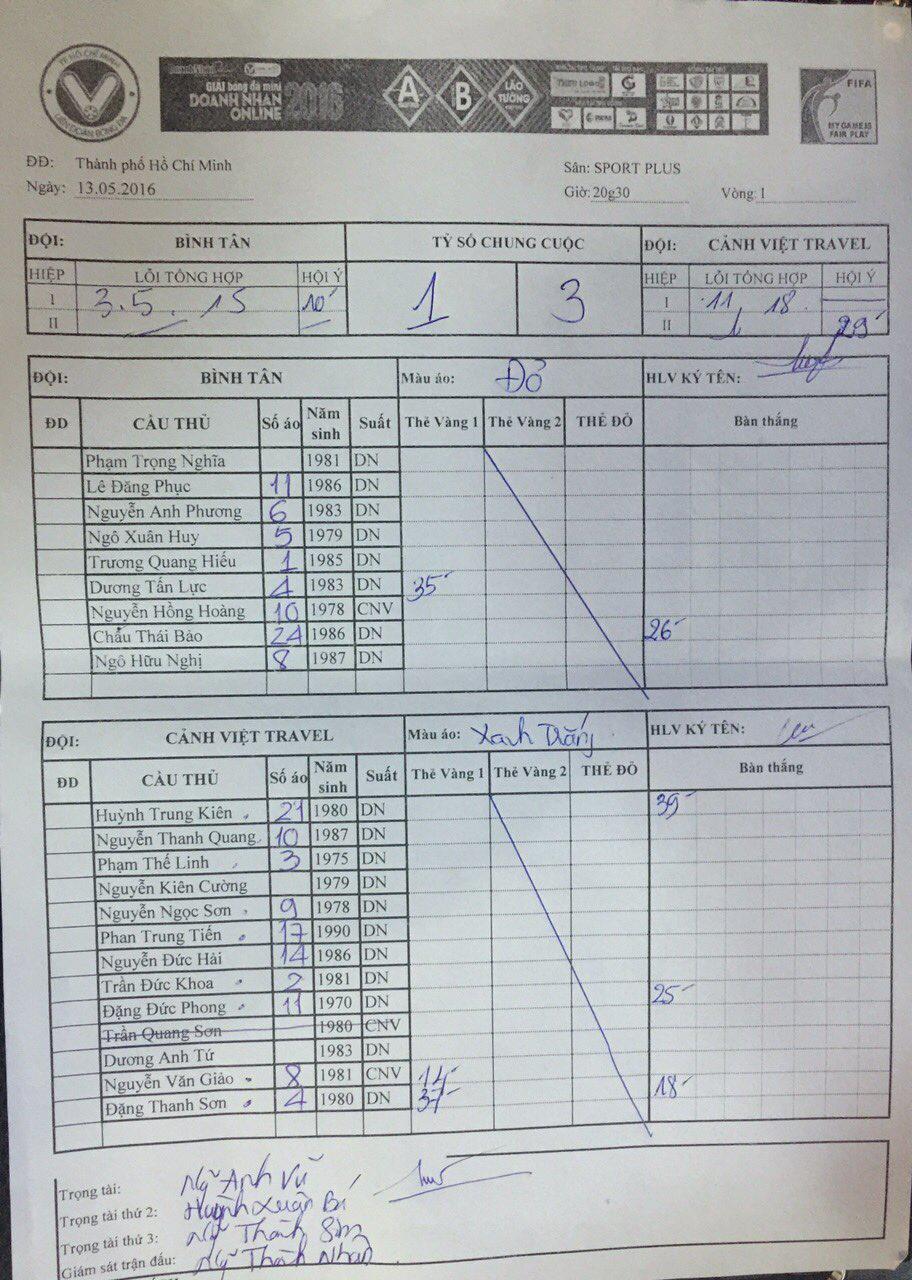 TP HỒ CHÍ MINH
LIÊN ĐOÀN BÓNG ĐÁ
GIẢI bóng đá mini
DOANH NHÂN
ONLINE
2016
A
B
LÃO
TƯỚNG
FIFA
MY GAME IS
FAIR PLAY
ĐĐ: Thành phố Hồ Chí Minh Sân: SPORT PLUS
Ngày: 13.05.2016 Giờ: 20g30 Vòng: 1
ĐỘI: BÌNH TÂN TỶ SỐ CHUNG CUỘC ĐỘI: CẢNH VIỆT TRAVEL
HIỆP LỖI TỔNG HỢP HỘI Ý 1 3 HIỆP LỖI TỔNG HỢP HỘI Ý
I 3.5. 15 10' I 11 18.
II II 29'
ĐỘI: BÌNH TÂN Màu áo: Đỏ HLV KÝ TÊN:
ĐD CẦU THỦ Số áo Năm sinh Suất Thẻ Vàng 1 Thẻ Vàng 2 THẺ ĐỎ Bàn thắng
Phạm Trọng Nghĩa 1981 DN
Lê Đăng Phục 11 1986 DN
Nguyễn Anh Phương 6 1983 DN
Ngô Xuân Huy 5 1979 DN
Trương Quang Hiếu 1 1985 DN
Dương Tấn Lực 4 1983 DN 35'
Nguyễn Hồng Hoàng 10 1978 CNV
Chẩu Thái Bảo 24 1986 DN 26'
Ngô Hữu Nghị 8 1987 DN
ĐỘI: CẢNH VIỆT TRAVEL Màu áo: Xanh Trắng HLV KÝ TÊN:
ĐD CẦU THỦ Số áo Năm sinh Suất Thẻ Vàng 1 Thẻ Vàng 2 THẺ ĐỎ Bàn thắng
Huỳnh Trung Kiên 21 1980 DN 39'
Nguyễn Thanh Quang 10 1987 DN
Phạm Thế Linh 3 1975 DN
Nguyễn Kiên Cường 1979 DN
Nguyễn Ngọc Sơn 9 1978 DN
Phan Trung Tiến 17 1990 DN
Nguyễn Đức Hải 14 1986 DN
Trần Đức Khoa 2 1981 DN
Đặng Đức Phong 11 1970 DN 25'
Trần Quang Sơn 1980 CNV
Dương Anh Tứ 1983 DN
Nguyễn Văn Giảo 8 1981 CNV 14' 18'
Đặng Thanh Sơn 4 1980 DN 37'
Trọng tài: Ng~ Anh Vũ
Trọng tài thứ 2: Huỳnh Xuân Bá
Trọng tài thứ 3: Ng~ Thành
Giám sát trận đấu: Ng~ Thành Nhân